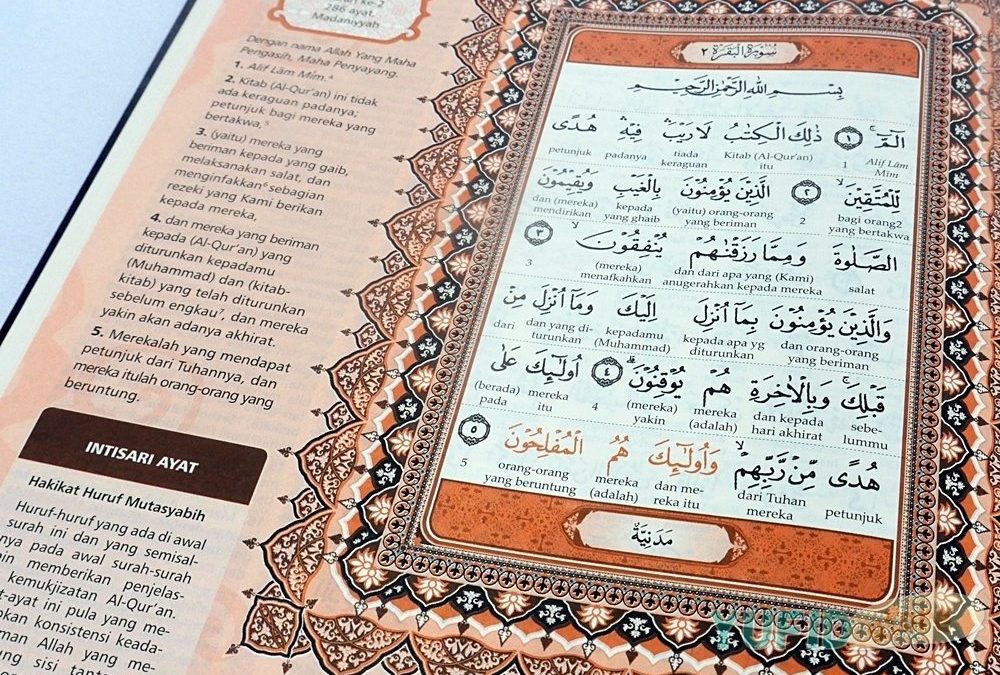 286 ayat.
Madaniyyah
Dengan nama Allah Yang Maha
Pengasih, Maha Penyayang.
1. Alif Lām Mīm.⁴
2. Kitab (Al-Qur'an) ini tidak
ada keraguan padanya;
petunjuk bagi mereka yang
bertakwa,⁵
3. (yaitu) mereka yang
beriman kepada yang gaib,
melaksanakan salat, dan
menginfakkan⁶ sebagian
rezeki yang Kami berikan
kepada mereka,
4. dan mereka yang beriman
kepada (Al-Qur'an) yang
diturunkan kepadamu
(Muhammad) dan (kitab-
kitab) yang telah diturunkan
sebelum engkau⁷, dan mereka
yakin akan adanya akhirat.
5. Merekalah yang mendapat
petunjuk dari Tuhannya, dan
mereka itulah orang-orang yang
beruntung.
INTISARI AYAT
Hakikat Huruf Mutasyabih
Huruf-huruf yang ada di awal
surah ini dan yang semisal-
nya pada awal surah-surah
memberikan penjelas-
kemukjizatan Al-Qur'an.
ayat-ayat ini pula yang me-
konsistensi keada-
man Allah yang me-
sisi
سُورَةُ الْبَقَرَةِ ٢
بِسْمِ اللّٰهِ الرَّحْمٰنِ الرَّحِيْمِ
الۤمّۤ ۚ ١ ذٰلِكَ الْكِتٰبُ لَا رَيْبَ ۛ فِيْهِ ۛ هُدًى
Alif Lām Mīm 1 Kitab (Al-Qur'an) itu tiada keraguan padanya petunjuk
لِّلْمُتَّقِيْنَ ۙ ٢ الَّذِيْنَ يُؤْمِنُوْنَ بِالْغَيْبِ وَيُقِيْمُوْنَ
bagi orang2 yang bertakwa 2 (yaitu) orang-orang yang beriman kepada yang ghaib dan (mereka) mendirikan
الصَّلٰوةَ وَمِمَّا رَزَقْنٰهُمْ يُنْفِقُوْنَ ۙ ٣
salat dan dari apa yang (Kami) anugerahkan kepada mereka (mereka) menafkahkan 3
وَالَّذِيْنَ يُؤْمِنُوْنَ بِمَآ اُنْزِلَ اِلَيْكَ وَمَآ اُنْزِلَ مِنْ
dan orang-orang yang beriman kepada apa yg diturunkan kepadamu (Muhammad) dan yang di- turunkan dari
قَبْلِكَ ۚ وَبِالْاٰخِرَةِ هُمْ يُوْقِنُوْنَ ۗ ٤ اُولٰۤىِٕكَ عَلٰى
sebe- lummu dan kepada hari akhirat mereka (adalah) (mereka) yakin 4 mereka itu (berada) pada
هُدًى مِّنْ رَّبِّهِمْ ۙ وَاُولٰۤىِٕكَ هُمُ الْمُفْلِحُوْنَ ٥
petunjuk dari Tuhan mereka dan me- reka itu mereka (adalah) orang-orang yang beruntung 5
مَدَنِيَّةٌ
YUFID